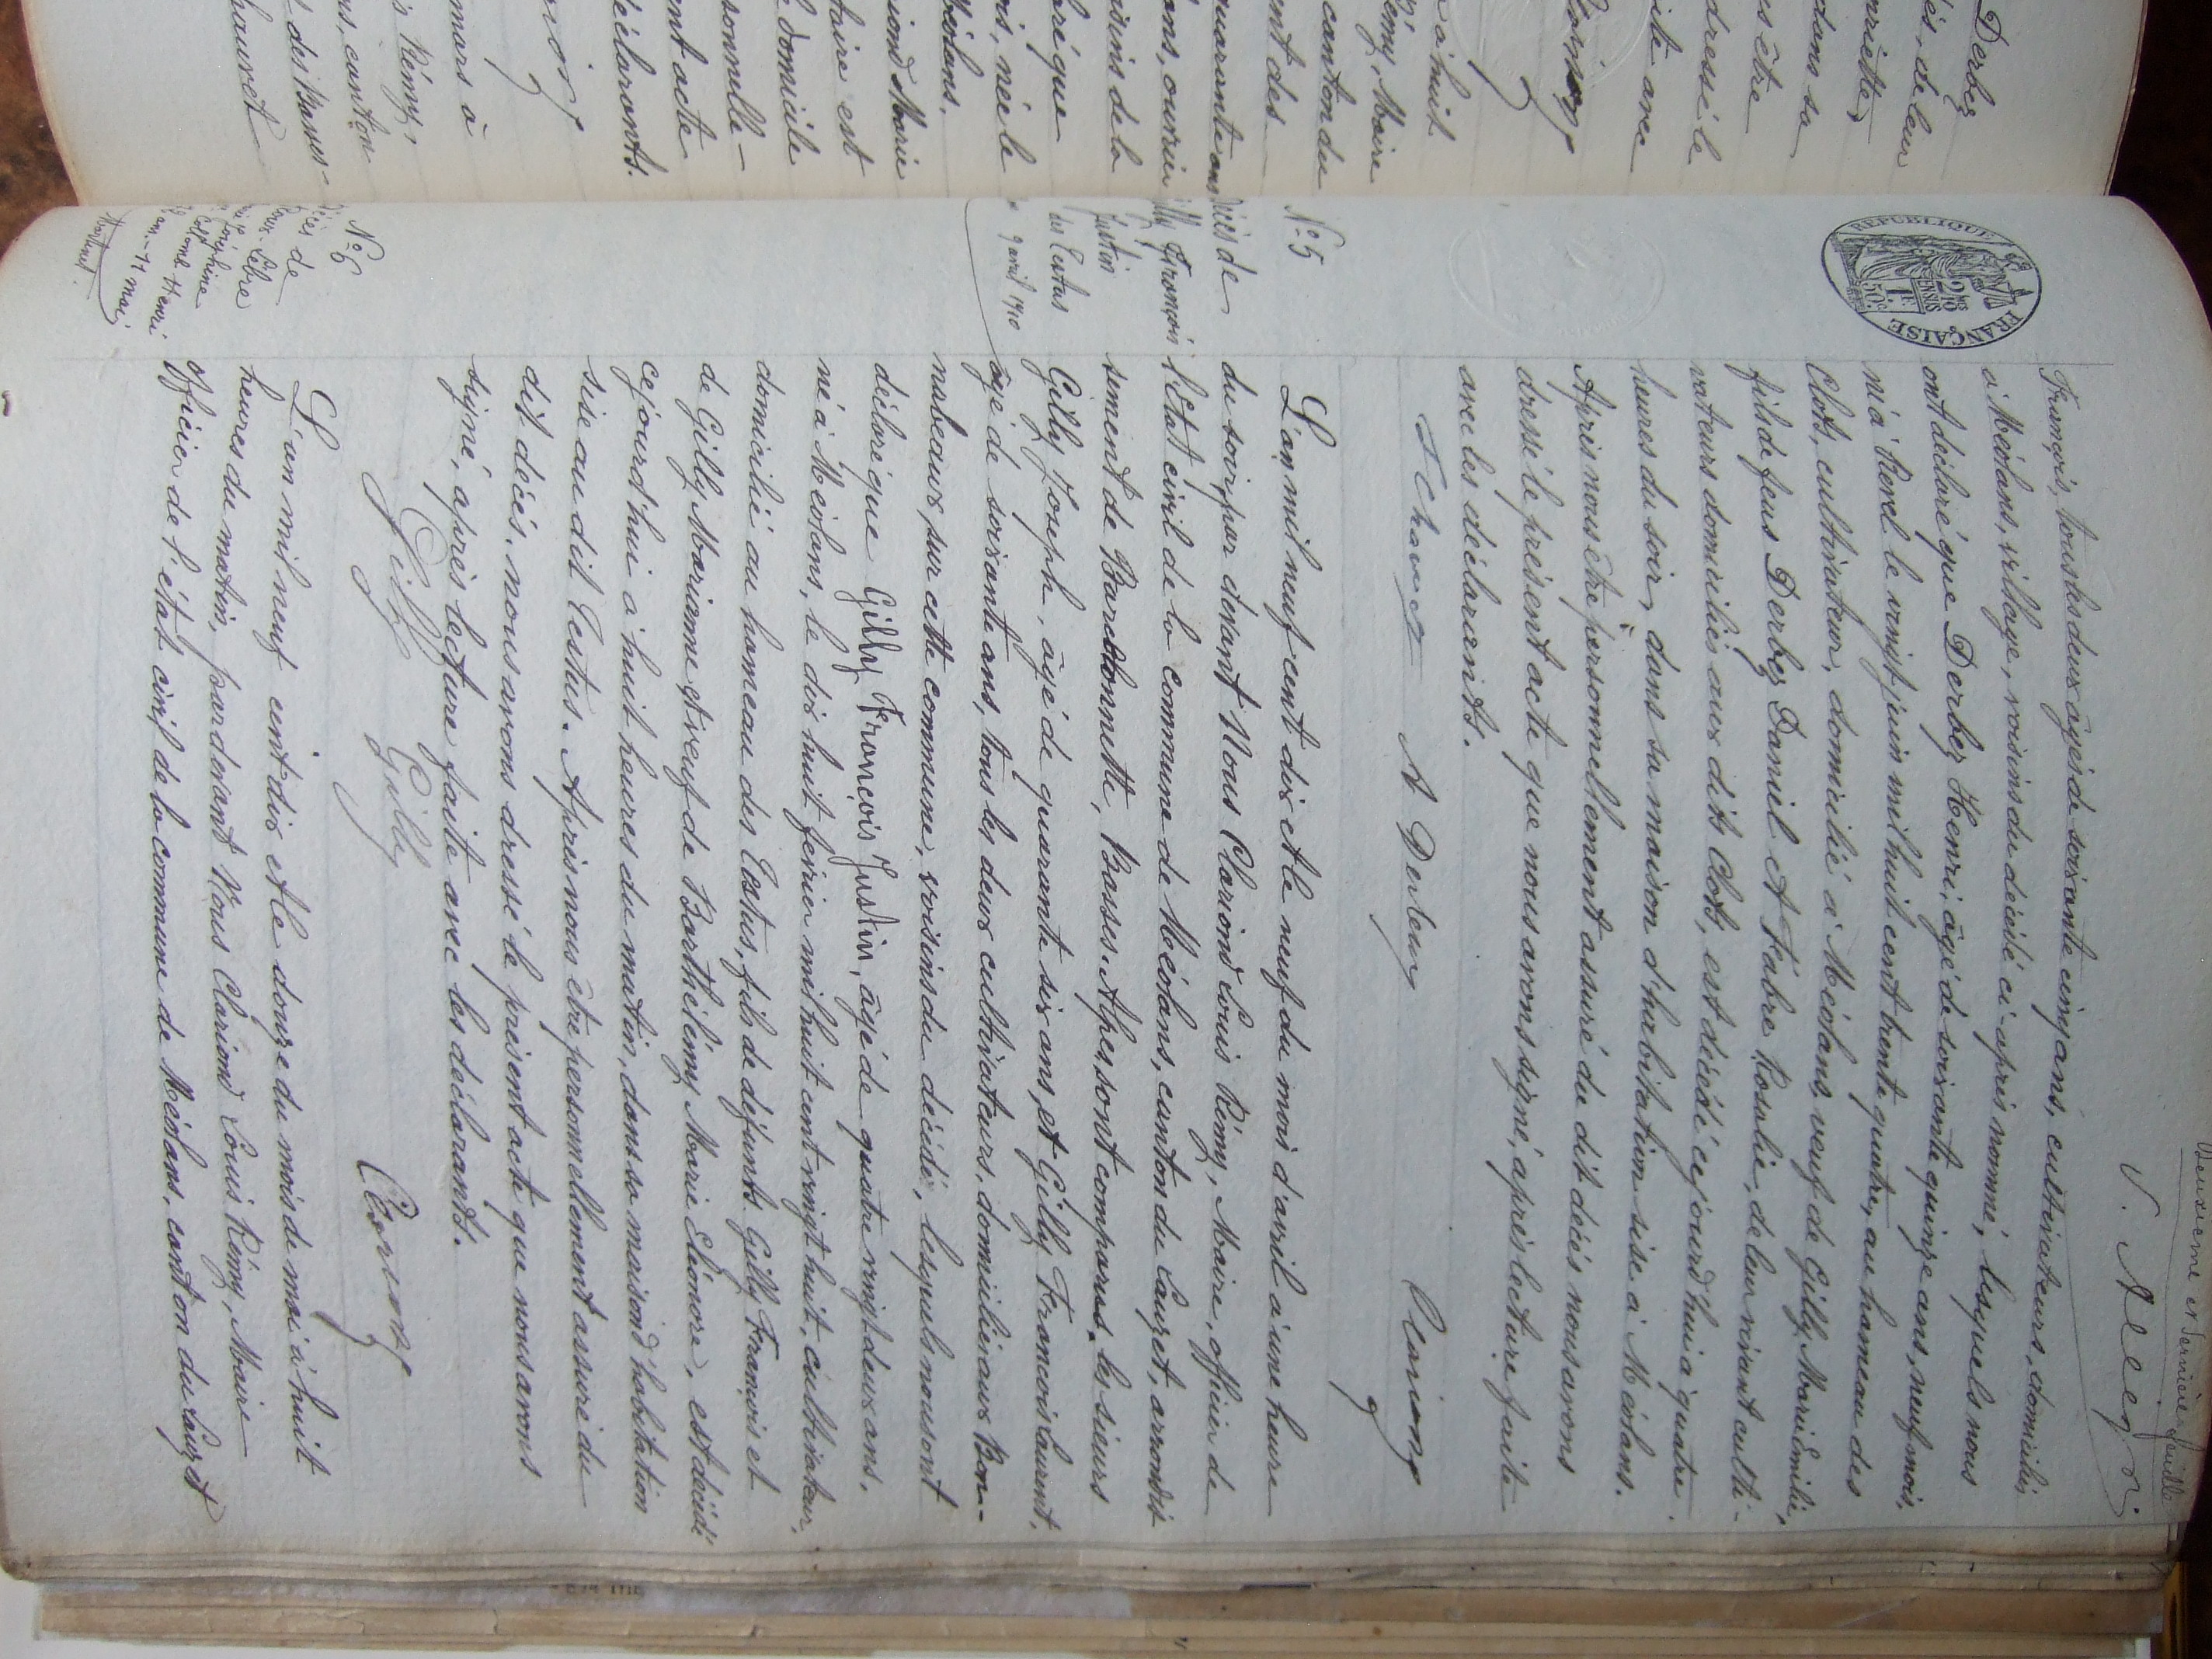 Derbez
és, de leur
nriette,
dans sa
s être
dressé le
ite avec
Clariony
à huit
Rémy, Maire
canton du
ent des
quarante ans
ans, ouvrier
voisins de la
aré que
is, née le
Méolans.
iond Marie
taire est
domicile
sonnelle-
ent acte
déclarants.
mars à
s Rémy,
us, canton
des Basses-
hauvet
Deuxième et dernière feuille
V. Allegri
REPUBLIQUE FRANÇAISE
François, tous les deux âgés de soixante cinq ans, cultivateurs, domiciliés
à Méolans, village, voisins du décédé ci-après nommé, lesquels nous
ont déclaré que Derbez Henri, âgé de soixante quinze ans, neuf mois,
né à Revel le vingt juin mil huit cent trente quatre, au hameau des
Clots, cultivateur, domicilié à Méolans, veuf de Gilly Marie Emilie,
fils de feus Derbez Daniel et Fabre Rosalie, de leur vivant culti-
vateurs domiciliés aux dits Clots, est décédé cejourd'hui à quatre
heures du soir, dans sa maison d'habitation sise à Méolans.
Après nous être personnellement assuré du dit décès nous avons
dressé le présent acte que nous avons signé, après lecture faite
avec les déclarants.
N° 5
Décès de
Gilly François
Justin
des Testus
9 avril 1910
L'an mil neuf cent dix et le neuf du mois d'avril à une heure
du soir, par devant Nous Clariond Louis Rémy, Maire, officier de
l'Etat civil de la commune de Méolans, canton du Lauzet, arrondis
sement de Barcelonnette, Basses-Alpes, sont comparus, les sieurs
Gilly Joseph, âgé de quarante six ans, et Gilly François Laurent,
âgé de soixante ans, tous les deux cultivateurs, domiciliés aux Bon-
nabeaux, sur cette commune, voisins du décédé, lesquels nous ont
déclaré que Gilly François Justin, âgé de quatre vingt deux ans,
né à Méolans, le dix huit février mil huit cent vingt huit, cultivateur,
domicilié au hameau des Testus, fils de défunts Gilly François et
de Gilly Marianne et veuf de Barthélémy Marie Eléonore, est décédé
cejourd'hui à huit heures du matin, dans sa maison d'habitation
sise au dit Testus. Après nous être personnellement assuré du
dit décès, nous avons dressé le présent acte que nous avons
signé, après lecture faite avec les déclarants.
Gilly Gilly
N° 6
Décès de
Joséphine
11 mai
L'an mil neuf cent dix et le douze du mois de mai à huit
heures du matin, par devant Nous Clariond Louis Rémy, Maire
officier de l'état civil de la commune de Méolans, canton du Lauzet